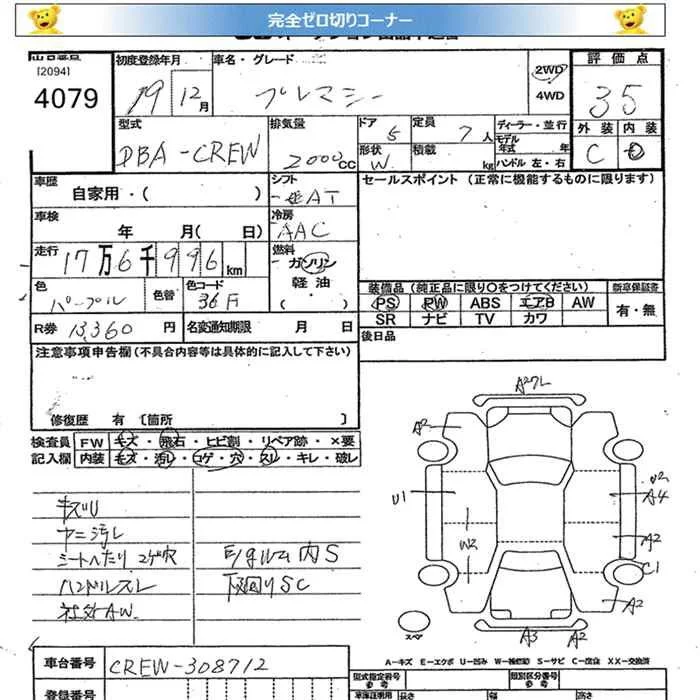 完全ゼロ切りコーナー
[2094]
4079
初度登録年月
19 12月
車名・グレード
プレマシー
2WD
4WD
評価点
3.5
外装 内装
C D
型式
DBA-CREW
排気量
2000 CC
ドア 5
形状 W
定員 7人
積載 kg
ディーラー・並行
モデル年式 年
ハンドル 左・右
車歴
自家用・( )
シフト
冷房
AAC
セールスポイント(正常に機能するものに限ります)
車検
年 月( 日)
走行
17万6千996km
燃料
ガソリン
軽油
( ・ )
色
パープル
色替
色コード
36F
装備品(純正品に限り○をつけてください)
PS PW ABS エアB AW
SR ナビ TV カワ
新車保証書
有・無
R券 13,360 円
名変通知期限 月 日
後日品
注意事項申告欄(不具合内容等は具体的に記入して下さい)
修復歴 有 〔箇所 〕
検査員記入欄
FW キズ・飛石・ヒビ割・リペア跡・×要
内装 キズ・汚レ・コゲ・穴・スレ・キレ・破レ
キズU
ヤニ汚レ
シートヘたり コゲ穴
ハンドルスレ
社外AW
内S
下廻りSC
A2
A2
U1
W2
U2
A4
A2
C1
A2
A3
A2
スペア
A-キズ E-エクボ U-凹み W-補修跡 S-サビ C-腐食 XX-交換済
車台番号
CREW-308712
登録番号
型式指定番号
参考
類別区分番号
参考
車庫証明用
参考
長さ
幅
高さ